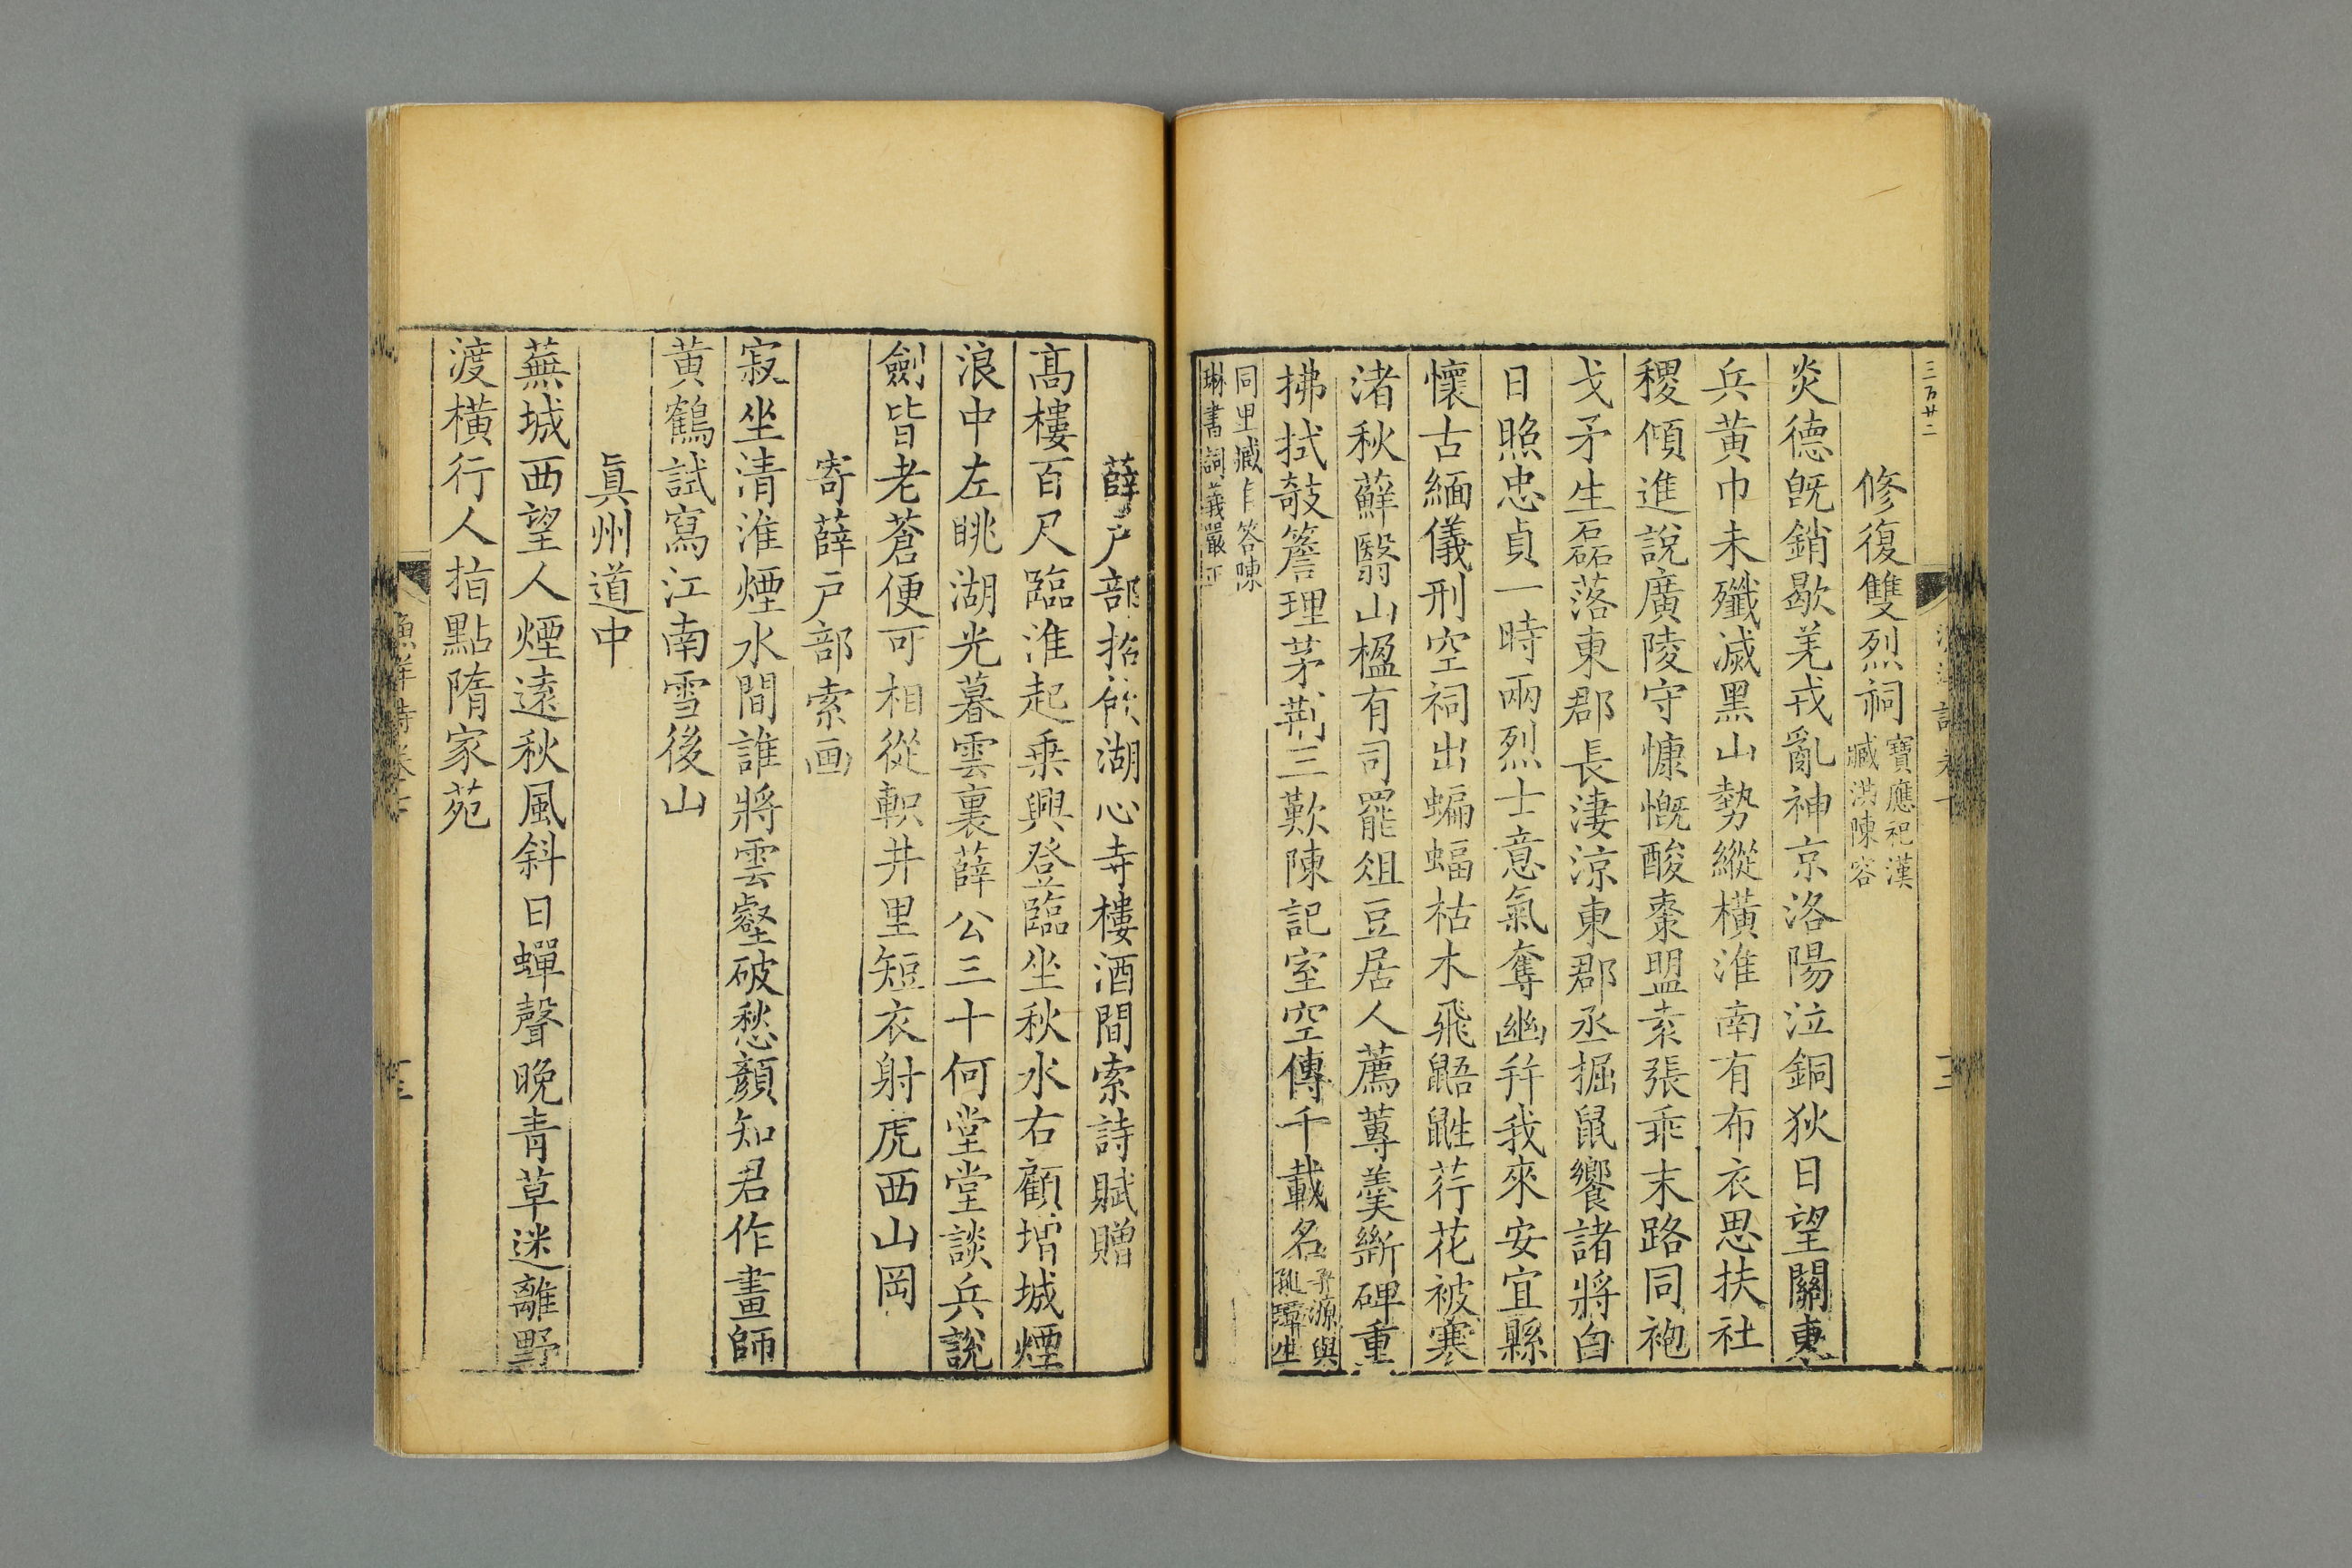 三百廿二
修復雙烈祠 寶應祀漢
臧洪陳容
炎德旣銷歇羌戎亂神京洛陽泣銅狄日望關東
兵黄巾未殲滅黑山勢縱橫淮南有布衣思扶社
稷傾進說廣陵守慷慨酸棗盟素張乖末路同袍
戈矛生磊落東郡長淒涼東郡丞掘鼠饗諸將白
日照忠貞一時兩烈士意氣奪幽并我來安宜縣
懷古緬儀刑空祠出蝙蝠枯木飛鼯鼪荇花被寒
渚秋蘚翳山楹有司罷俎豆居人薦蓴羹斷碑重
拂拭攲簷理茅荆三歎陳記室空傳千載名 子源與
孔璋生
同里臧自答陳
琳書詞義嚴正
薛戶部招飲湖心寺樓酒間索詩賦贈
高樓百尺臨淮起乗興登臨坐秋水右顧増城煙
浪中左眺湖光暮雲裏薛公三十何堂堂談兵說
劍皆老蒼便可相從軹井里短衣射虎西山岡
寄薛戶部索画
寂坐清淮煙水間誰將雲壑破愁顏知君作畫師
黄鶴試寫江南雪後山
眞州道中
蕪城西望人煙遠秋風斜日蟬聲晚青草迷離野
渡橫行人指點隋家苑
漁洋詩卷十